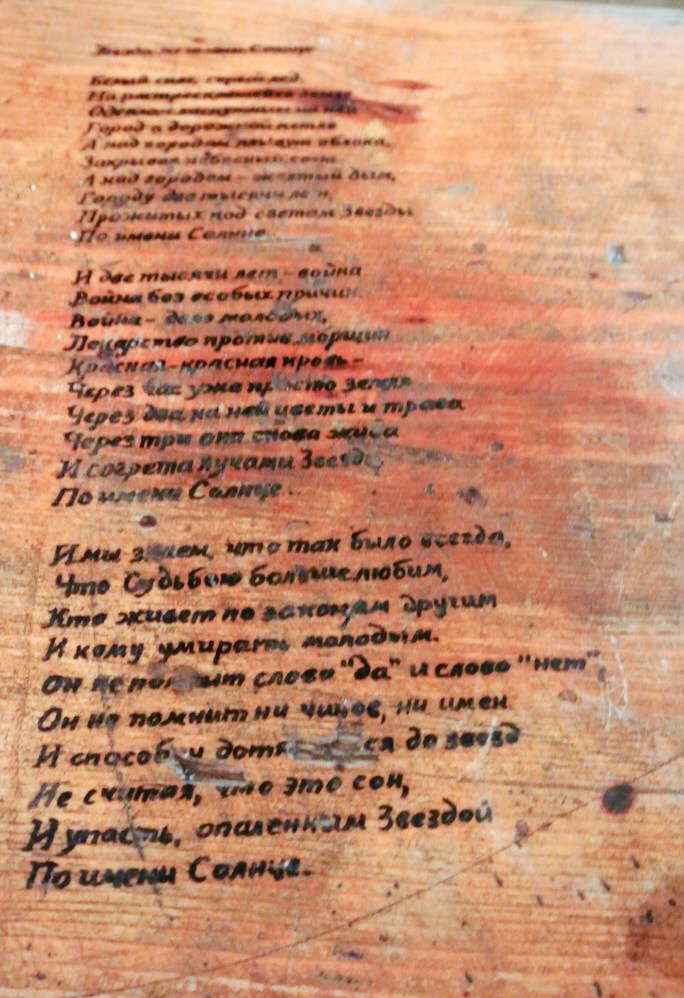 Звезда по имени Солнце
Белый снег, серый лед
На растрескавшейся земле
Одеялом лоскутным на ней
Город в дорожной петле
А над городом плывут облака,
Закрывая небесный свет
А над городом - желтый дым,
Городу две тысячи лет,
Прожитых под светом Звезды
По имени Солнце
И две тысячи лет - война
Война без особых причин
Война - дело молодых,
Лекарство против морщин
Красная-красная кровь -
Через час уже просто земля
Через два на ней цветы и трава
Через три она снова жива
И согрета лучами Звезды
По имени Солнце...
И мы знаем, что так было всегда,
Что Судьбою больше любим,
Кто живет по законам другим
И кому умирать молодым.
Он не помнит слово "да" и слово "нет",
Он не помнит ни чинов, ни имен
И способен дотя ся до звезд
Не считая, что это сон,
И упасть, опаленным Звездой
По имени Солнце.